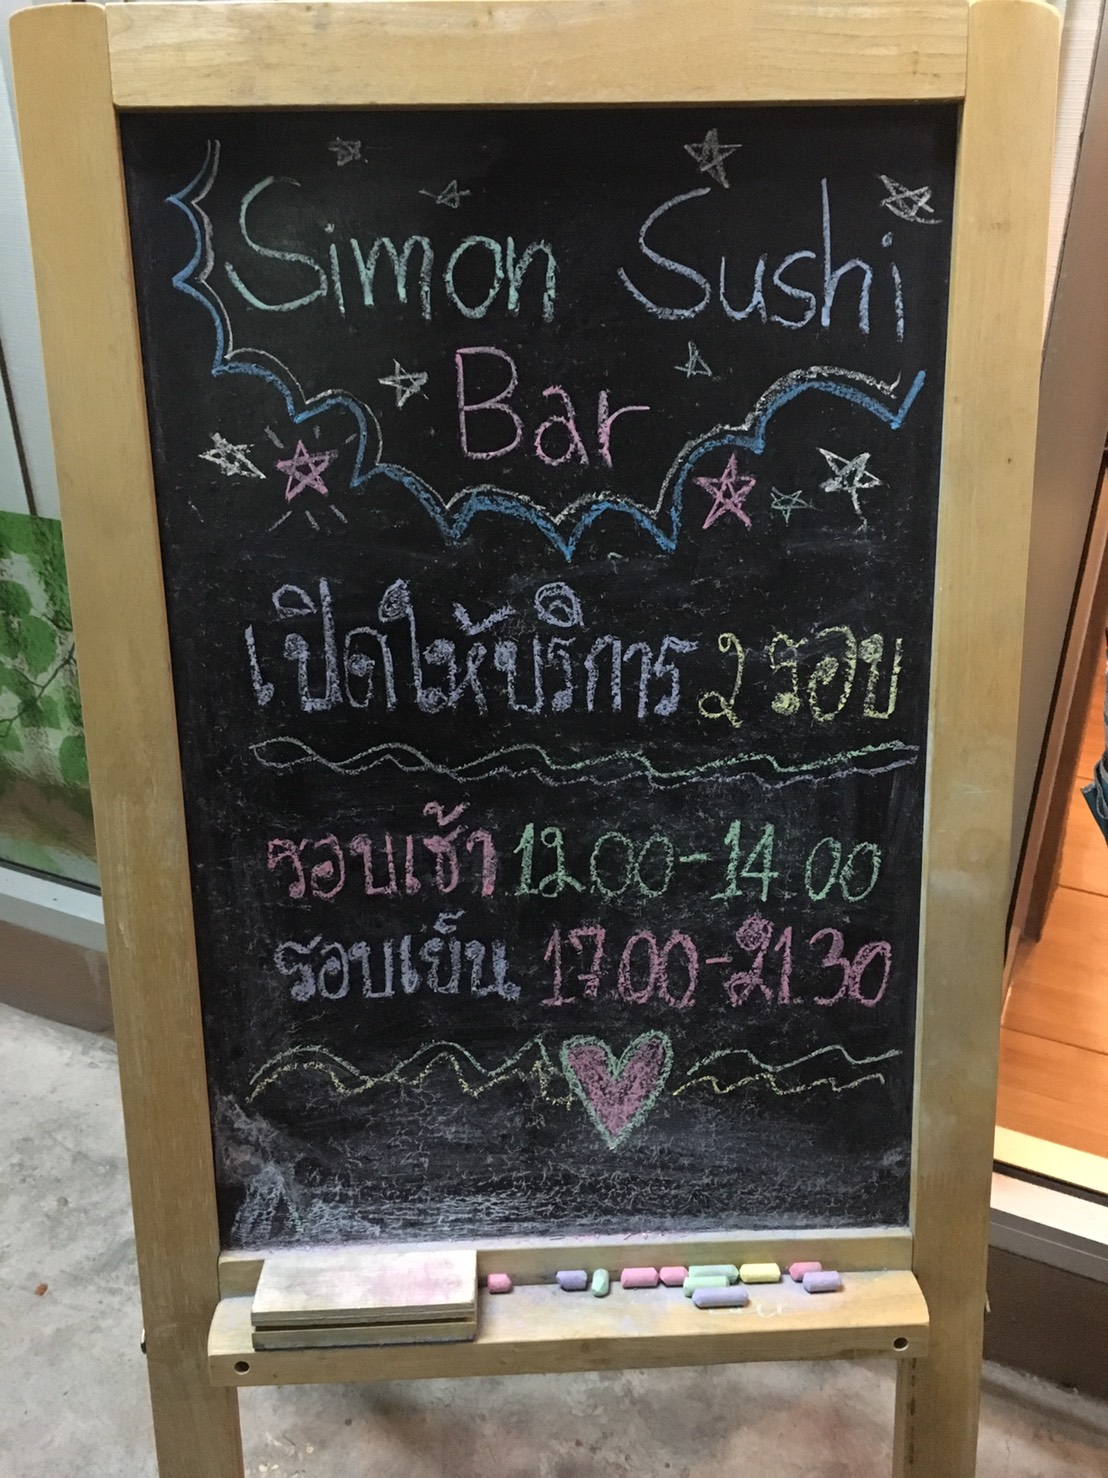 Simon Sushi
Bar
เปิดให้บริการ 2 รอบ
รอบเช้า 12.00-14.00
รอบเย็น 17.00-21.30